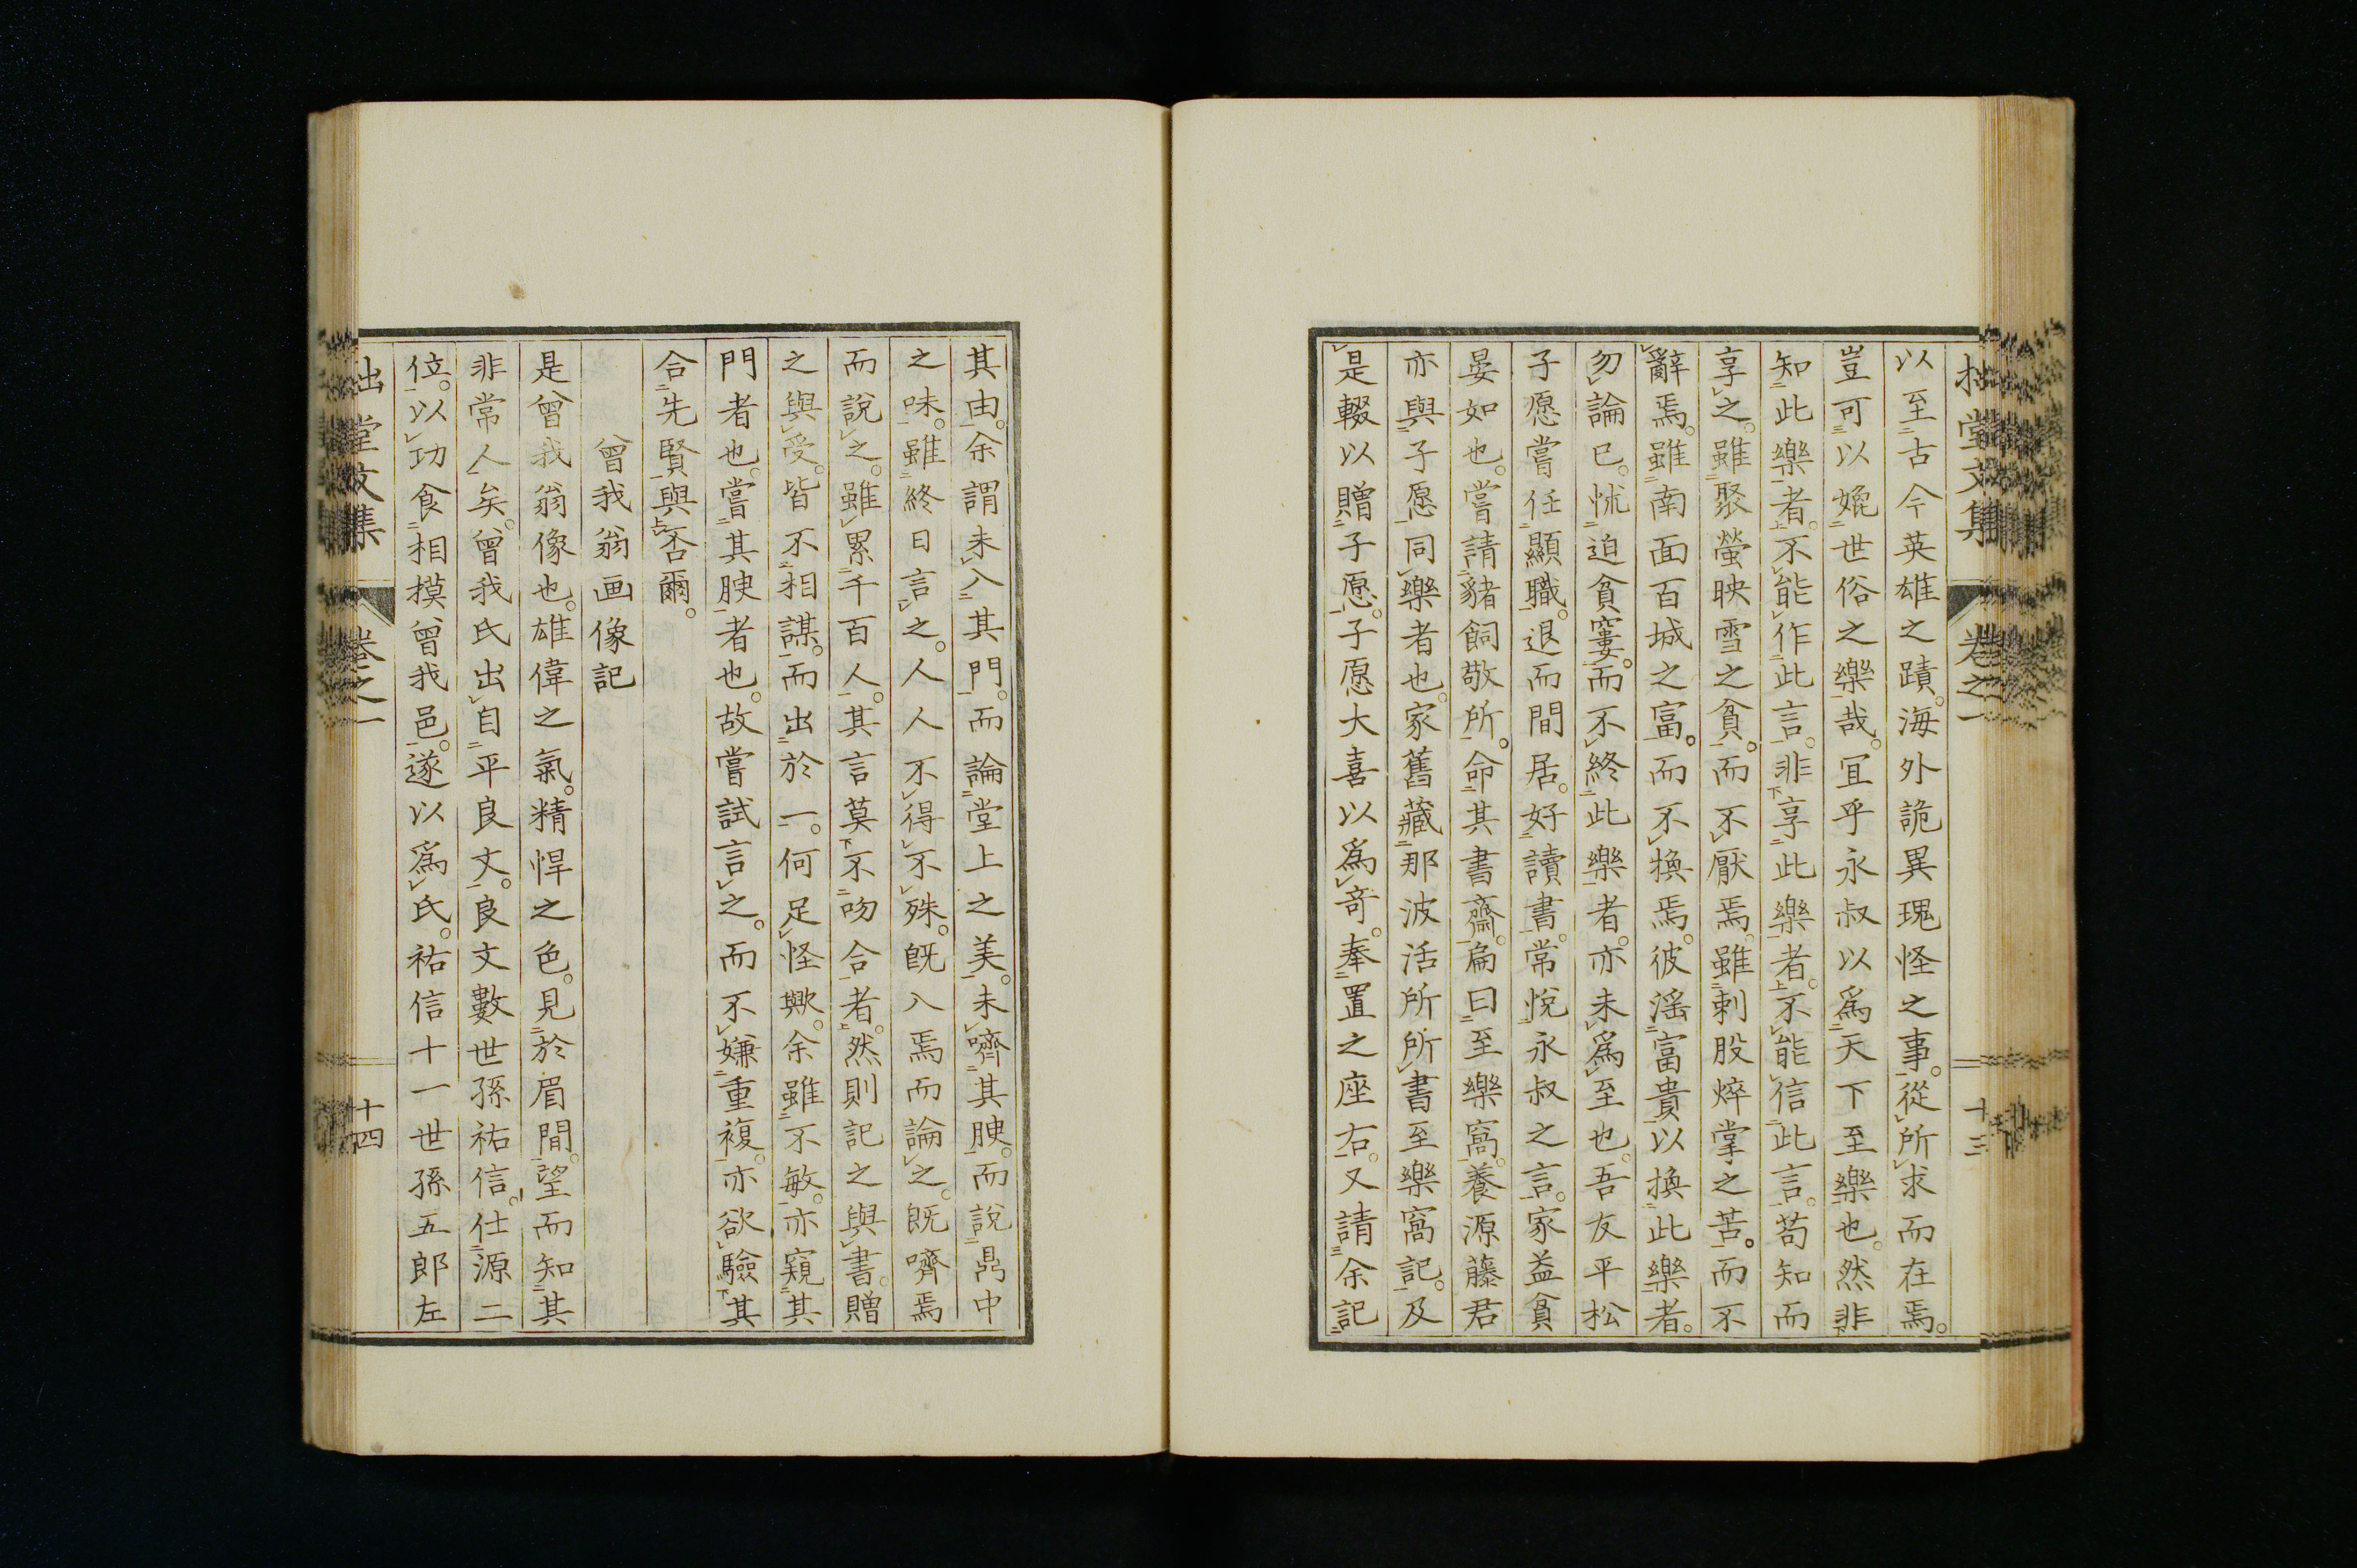 拙堂文集 卷之一 十三
以至古今英雄之蹟。海外詭異瑰怪之事。從所求而在焉。
豈可以娩世俗之樂哉。冝乎永叔以爲天下至樂也。然非
知此樂者。不能作此言。非享此樂者。不能信此言。苟知而
享之。雖聚螢映雪之貧。而不厭焉。雖刺股焠掌之苦。而不
辭焉。雖南面百城之富。而不換焉。彼滛富貴以換此樂者。
勿論已。怵迫貧窶。而不終此樂者。亦未爲至也。吾友平松
子愿嘗任顯職。退而間居。好讀書。常悅永叔之言。家益貧
晏如也。嘗請豬飼敬所。命其書齋。扁曰至樂窩。養源藤君
亦與子愿同樂者也。家舊藏那波活所所書至樂窩記。及
是輟以贈子愿。子愿大喜以爲奇。奉置之座右。又請余記
其由。余謂未入其門。而論堂上之美。未嚌其腴。而說鼎中
之味。雖終日言之。人人不得不殊。既入焉而論之。既嚌焉
而說之。雖累千百人。其言莫不吻合者。然則記之與書。贈
之與受。皆不相謀。而出於一。何足怪歟。余雖不敏。亦窺其
門者也。嘗其腴者也。故嘗試言之。而不嫌重複。亦欲驗其
合先賢與否爾。
曾我翁画像記
是曾我翁像也。雄偉之氣。精悍之色。見於眉間。望而知其
非常人矣。曾我氏出自平良文。良文數世孫祐信。仕源二
位。以功食相摸曾我邑。遂以爲氏。祐信十一世孫五郎左
拙堂文集 卷之一 十四